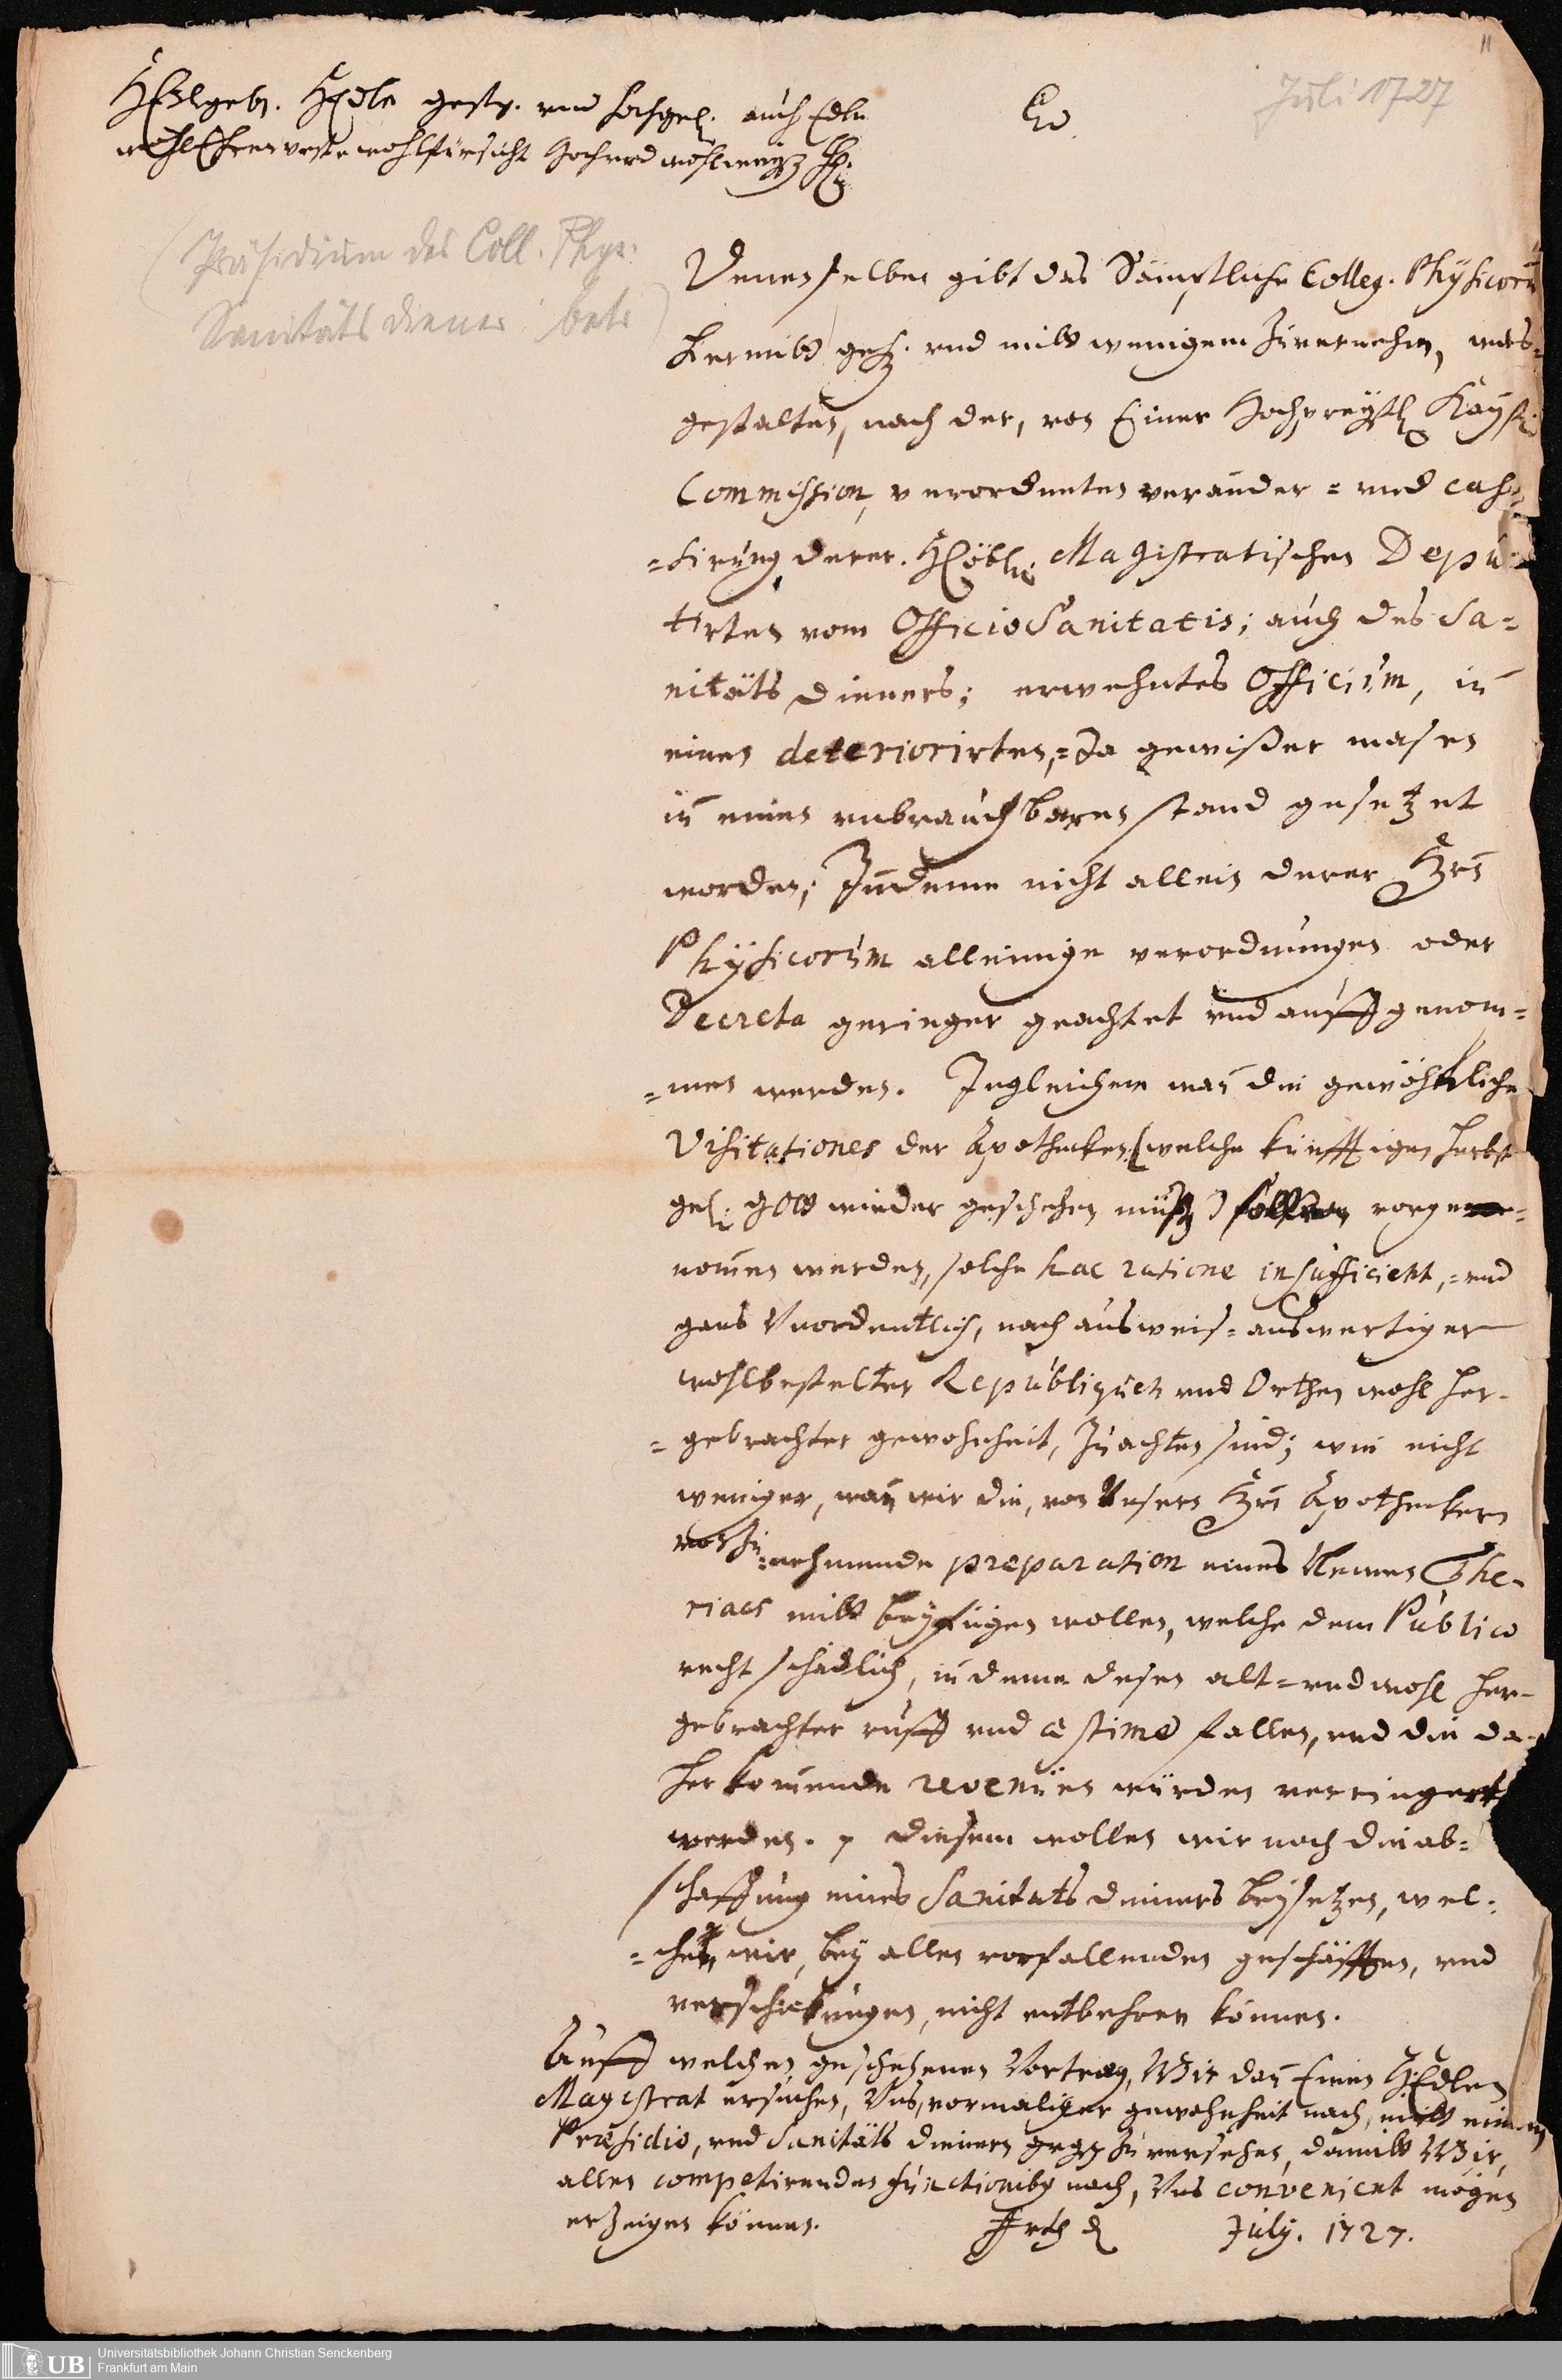 11
Juli 1727
HEdlgeb. HEdle gestr. und hochgel. auch Edle
wohlEhrenveste wohlfürsicht Hoch und wohlweise HH.
Ew
(Präsidium des Coll. Phys.
Sanitäts diener betr)
Denenselben gibt das Sämptliche Colleg. Physicorū
hiermitt geh. und mitt wenigem Zuvernehm, was-
gestalten, nach der, von Einer Hochpreyßl Kaysl
Commission, verordneten verander= und cas-
=sirung derer HLöbl. Magistratischen Depu
tirten vom Officio Sanitatis; auch des Sa=
nitäts dieners; erwehntes Officium, in
einen deteriorirten,=Ja gewißer masen
in einen unbrauchbaren stand gesetzet
worden; Indeme nicht allein derer Hrn
Physicorum alleinige verordnungen oder
Decreta geringer geachtet und auff genom=
=men werden. Ingleichem wan die gewöhnliche
Visitationes der Apothecken (welche künfftigen herbst
gel. gott wieder geschehen müß) sollten vorge=
nomen werden, solche hac ratione insufficient,=und
gans Unordentlich, nach ausweis=auswertiger
wohlbestelter Republiquen und Orthen wohl her-
=gebrachter gewohnheit, Zu achten sind; wie nicht
weniger, wan wir die, von Unsern Hrn Apotheckern
vorzu
=nehmende preparation eines Neuen The-
riacs mitt beyfügen wollen, welche dem Publico
recht schädlich, in deme desen alt=und wohl her-
gebrachter ruff und æstime fallen, und die da-
her komende revenüen würden verringert
werden. diesem wollen wir noch die ab=
schaffung eines Sanitäts dieners beysetzen, wel-
=chen wir, bey allen vorfallenden geschäfften, und
verschickungen, nicht entbehren können.
Auff welchen geschehenen Vortrag, Wir dan Einen HEdlen
Magistrat ersuchen, Uns, vormaliger gewohnheit nach, mitt einem
Præsidio, und Sanitäts dienern zu versehen, damitt Wir,
allen competirenden functionibg nach, Uns convenient mögen
erzeigen können.
Frfth d July. 1727.
UB
Universitätsbibliothek Johann Christian Senckenberg
Frankfurt am Main